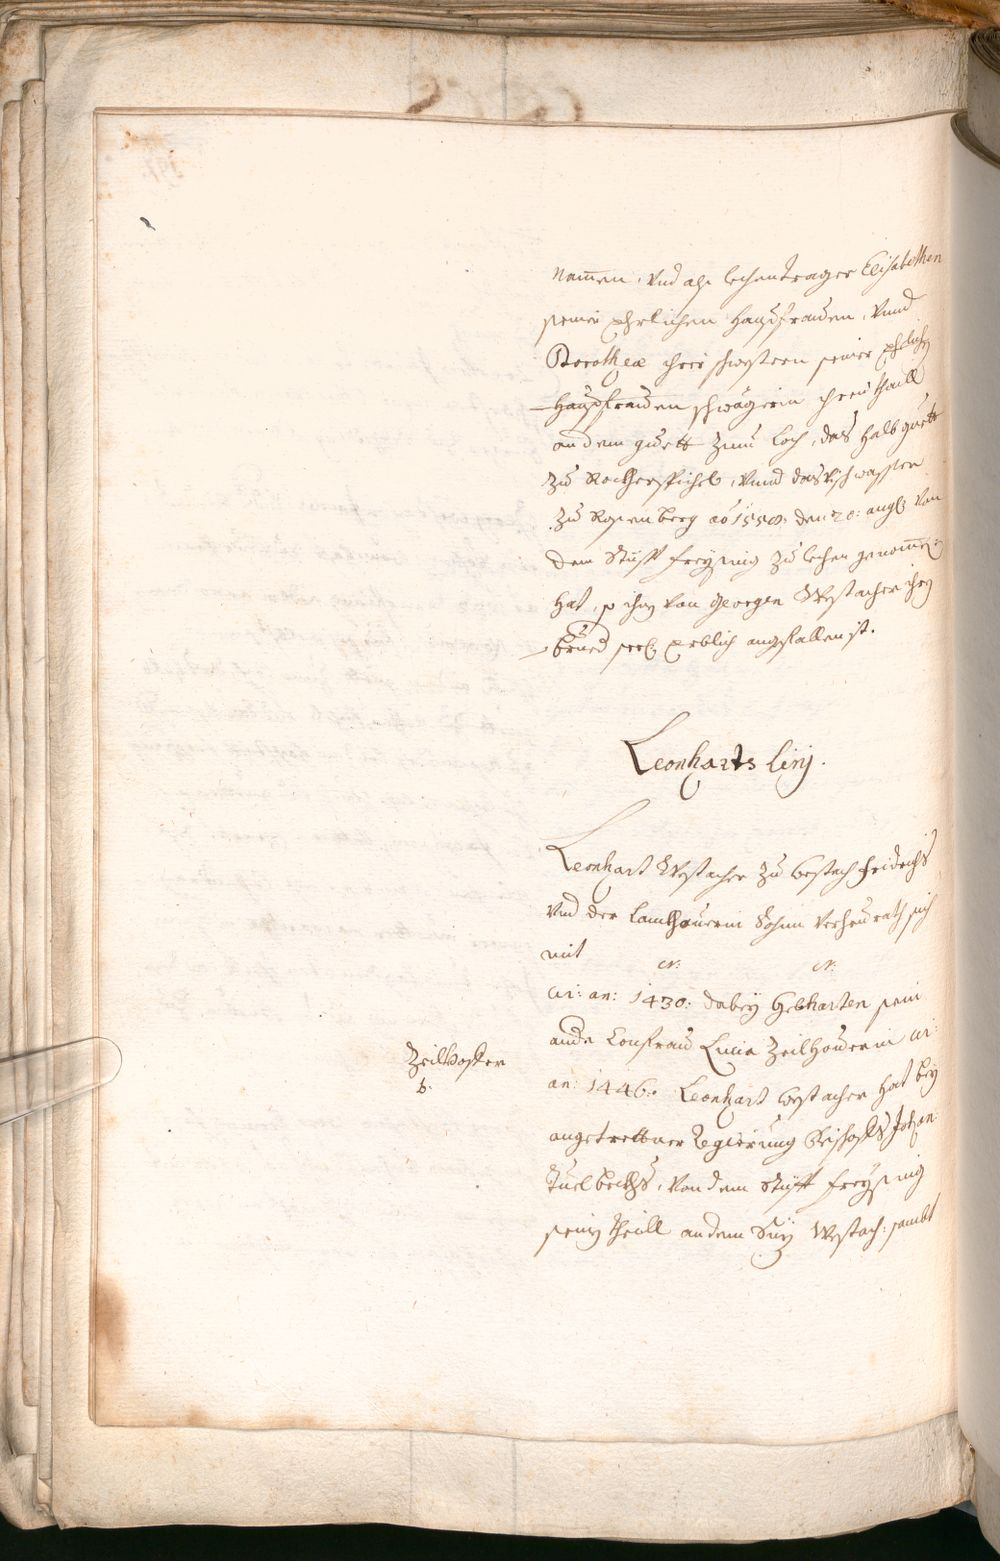 Namen, Vnd alß lechentrager Elisabethen
seiner Ehrlichen Haußfrauen, Vnnd
Dorothea ihrer schwestern seiner Ehelichen
Haußfrauen schwägerin ihren thaill
an dem guett zum Loch, das halb guett
zu Rothersspichel, Vnnd das Vischwasser
zu Rosenberg aō 1558. den 20: aug: Von
dem Stüfft Freysing zu lechen genommen
hat, so ihr Von Georgen Westacher ihrn
brued: seel: Erblich angefallen ist.
Leonharts Linj.
Leonhart Westacher zu Westach Fridrichs
Vnd der Lamthauserin Sohnn Verheurath sich
mit N: N:
Ux: an: 1430. dabey Gebharten sein
ande Consfrau Lucia Zeilhoverin ux:
an: 1446. Leonhart Westacher hat bey
angetrettner Regierung Bischoffs Johan
Tuelbeckhs, Von dem Stüfft Freysing
sein theill an dem Siz Westach: sambt
Zeilhofer
b.